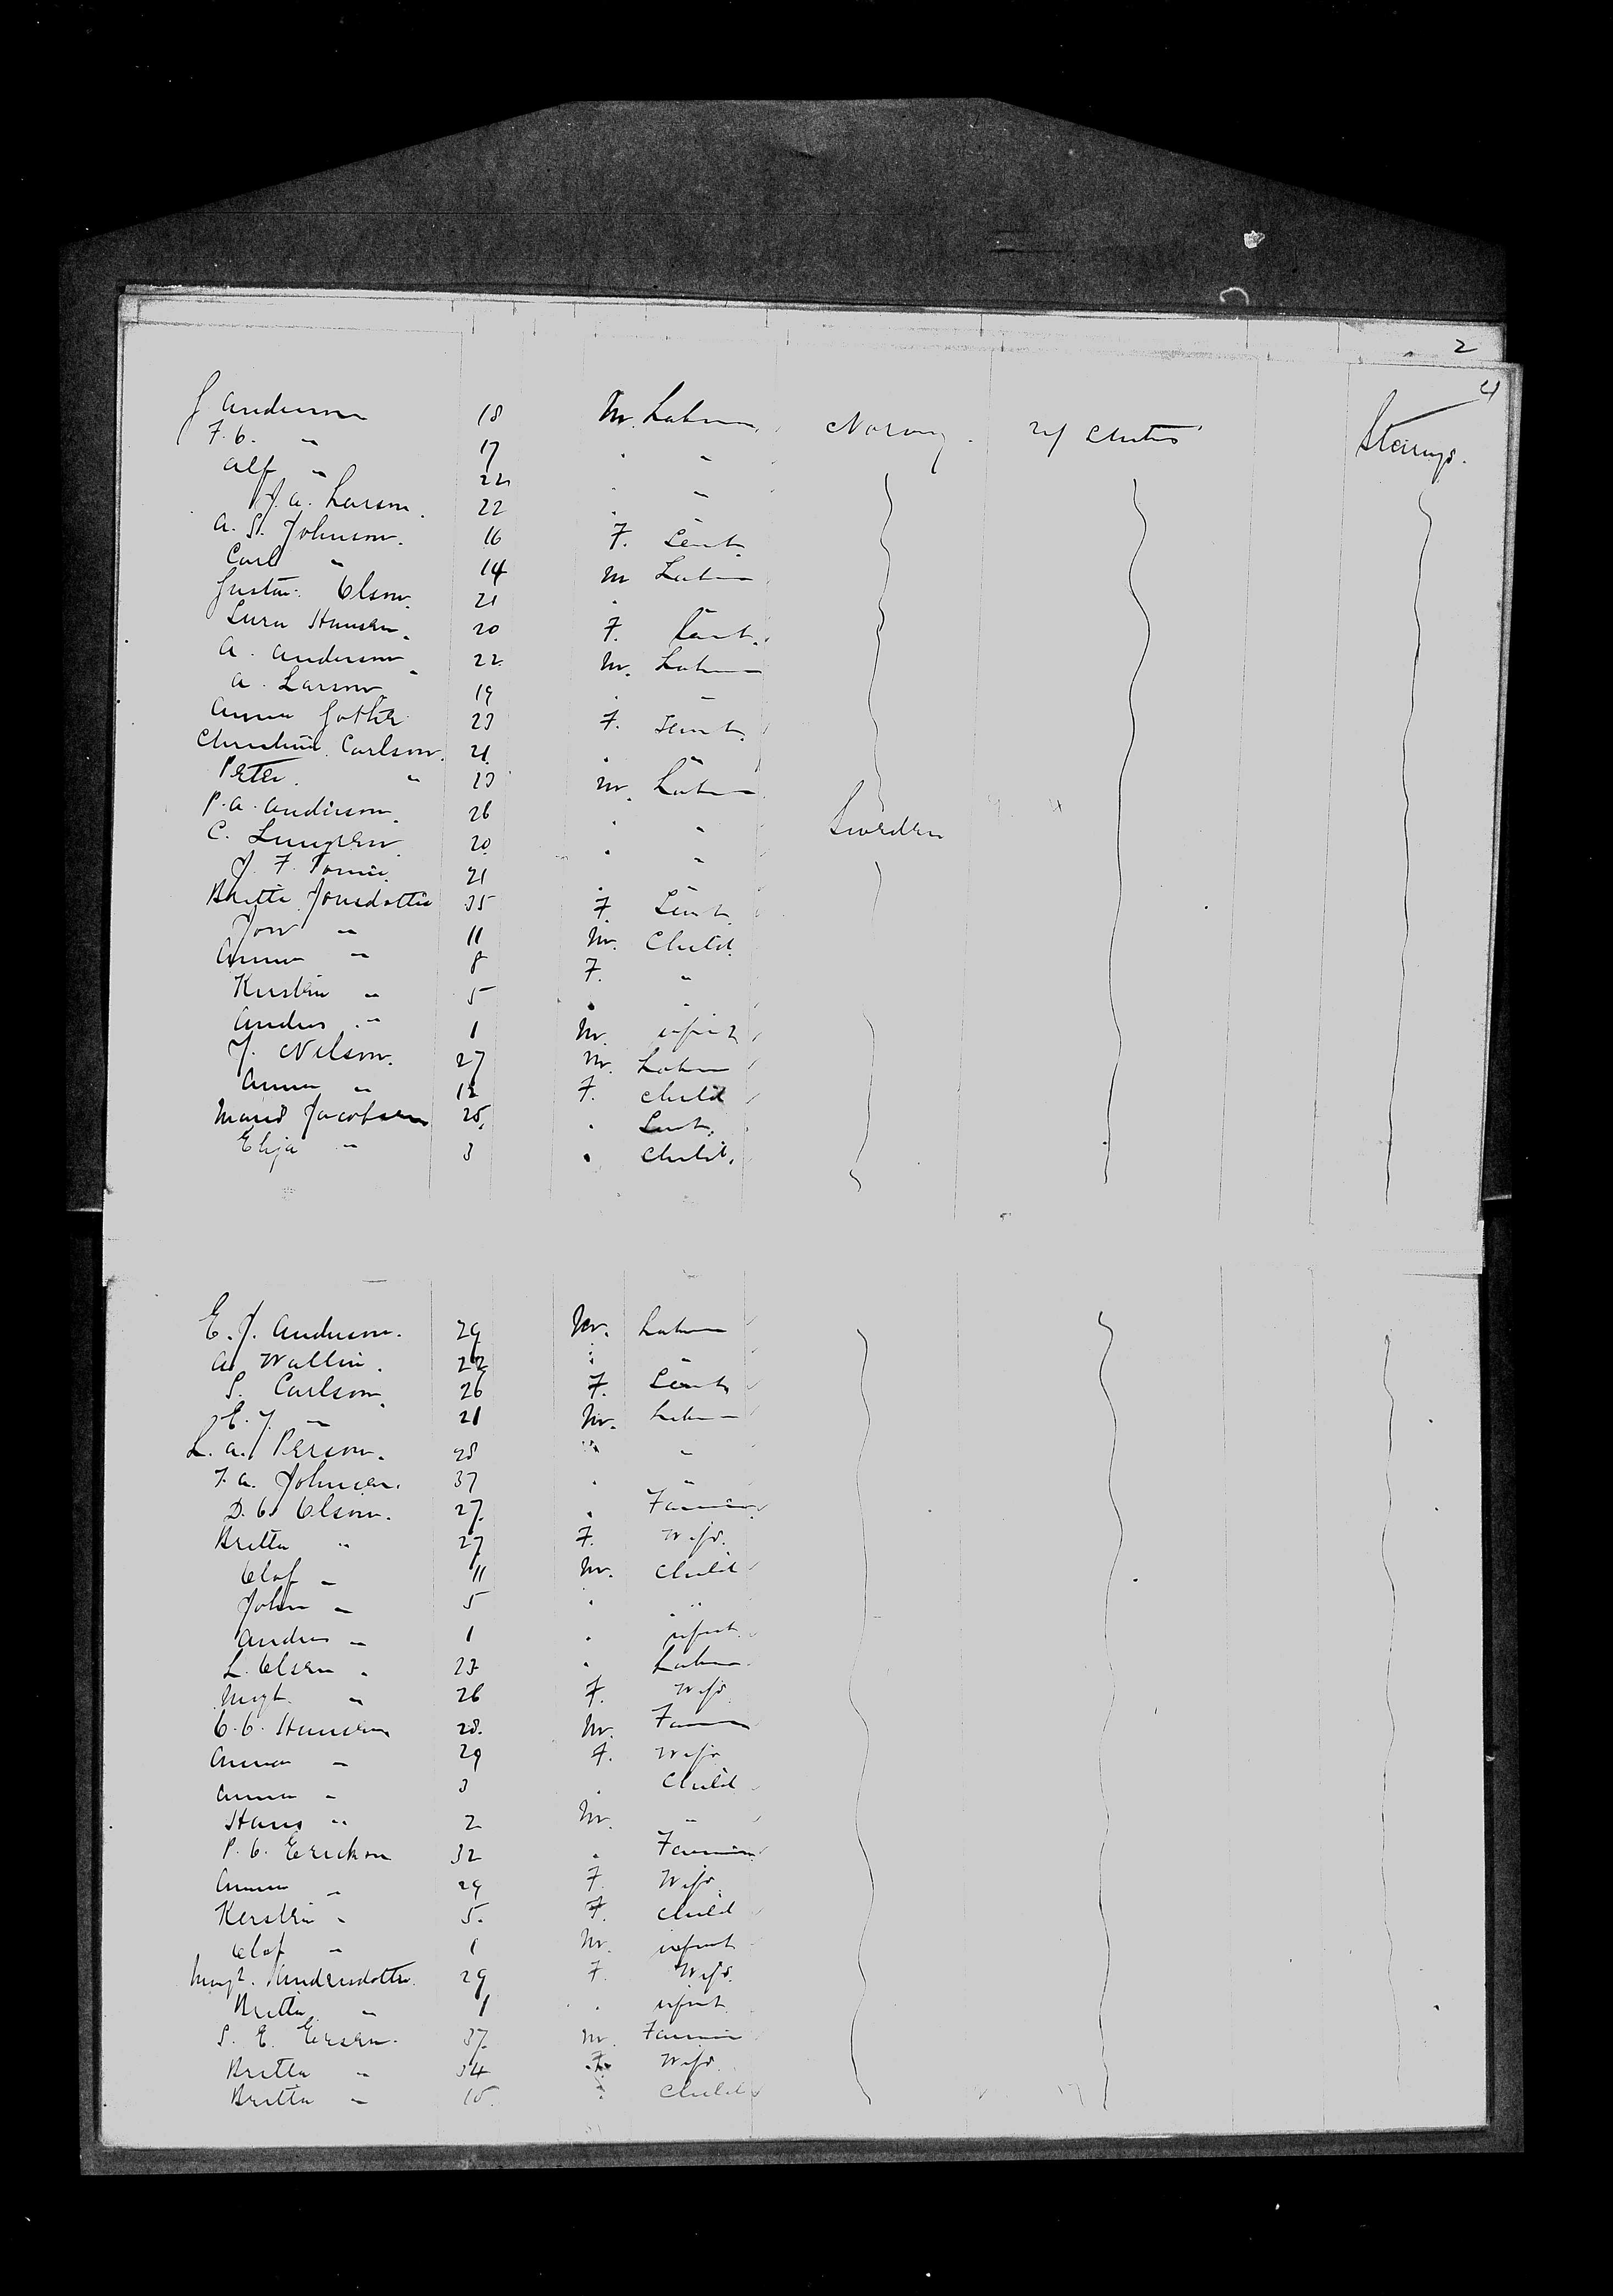 2
4
J Anderson 18 M. Labour Norway U/ States Steerage.
F. O. " 17 " "
Alf " 22 " "
J. A. Larson. 22 " "
A. S. Johnson. 16 F. Servt.
Carl " 14 M Labour
Gustav. Olson. 21 " "
Lura Hansen. 20 F. Servt.
A. Anderson 22 M. Labour
A. Larson 19 " "
Anna Gothe 23 F. Servt.
Christina Carlson. 21. " "
Peter. " 23 M. Labour
P. A. Anderson. 26 " " Sweden
C. Lungren 20 " "
J. F. 21 "
Britta Jonsdotter 35 F. Servt.
Jon " 11 M. Child.
Anna " 8 F. "
Kerstin " 5 " "
Andres " 1 M. infant
J. Nelson. 27 M. Labour
Anna " 12 F. Child
Maria Jacobsen 25, " Servt.
Elija " 3 " Child.
E. J. Anderson. 29 M. Labour
A. Wallin. 22 " "
S. Carlson. 26 F. Servt
E. J. " 21 M. Labour
L. A. Person. 28 " "
F. A. Johnsen. 37 " "
D. O. Olson. 27. " Farmer
Britta " 27 F. Wife.
Olof " 11 M. Child
John " 5 " "
Andres " 1 " infant
L. Olsen " 23 " Labour
Mrgt. " 26 F. Wife
O. O. Hansen 28. M. Farmer
Anna " 29 F. Wife
Anna " 3 " Child
Hans " 2 M. "
P. O. Erickson 32 " Farmer
Anna " 29 F. Wife
Kerstin " 5. F. Child
Olof " 1 M. infant
Margt. Andersdotter 29 F. Wife.
Britta " 1 " infant
S. E. Ersen. 37. M. Farmer
Britta " 34 F. Wife.
Britta " 10. " Child